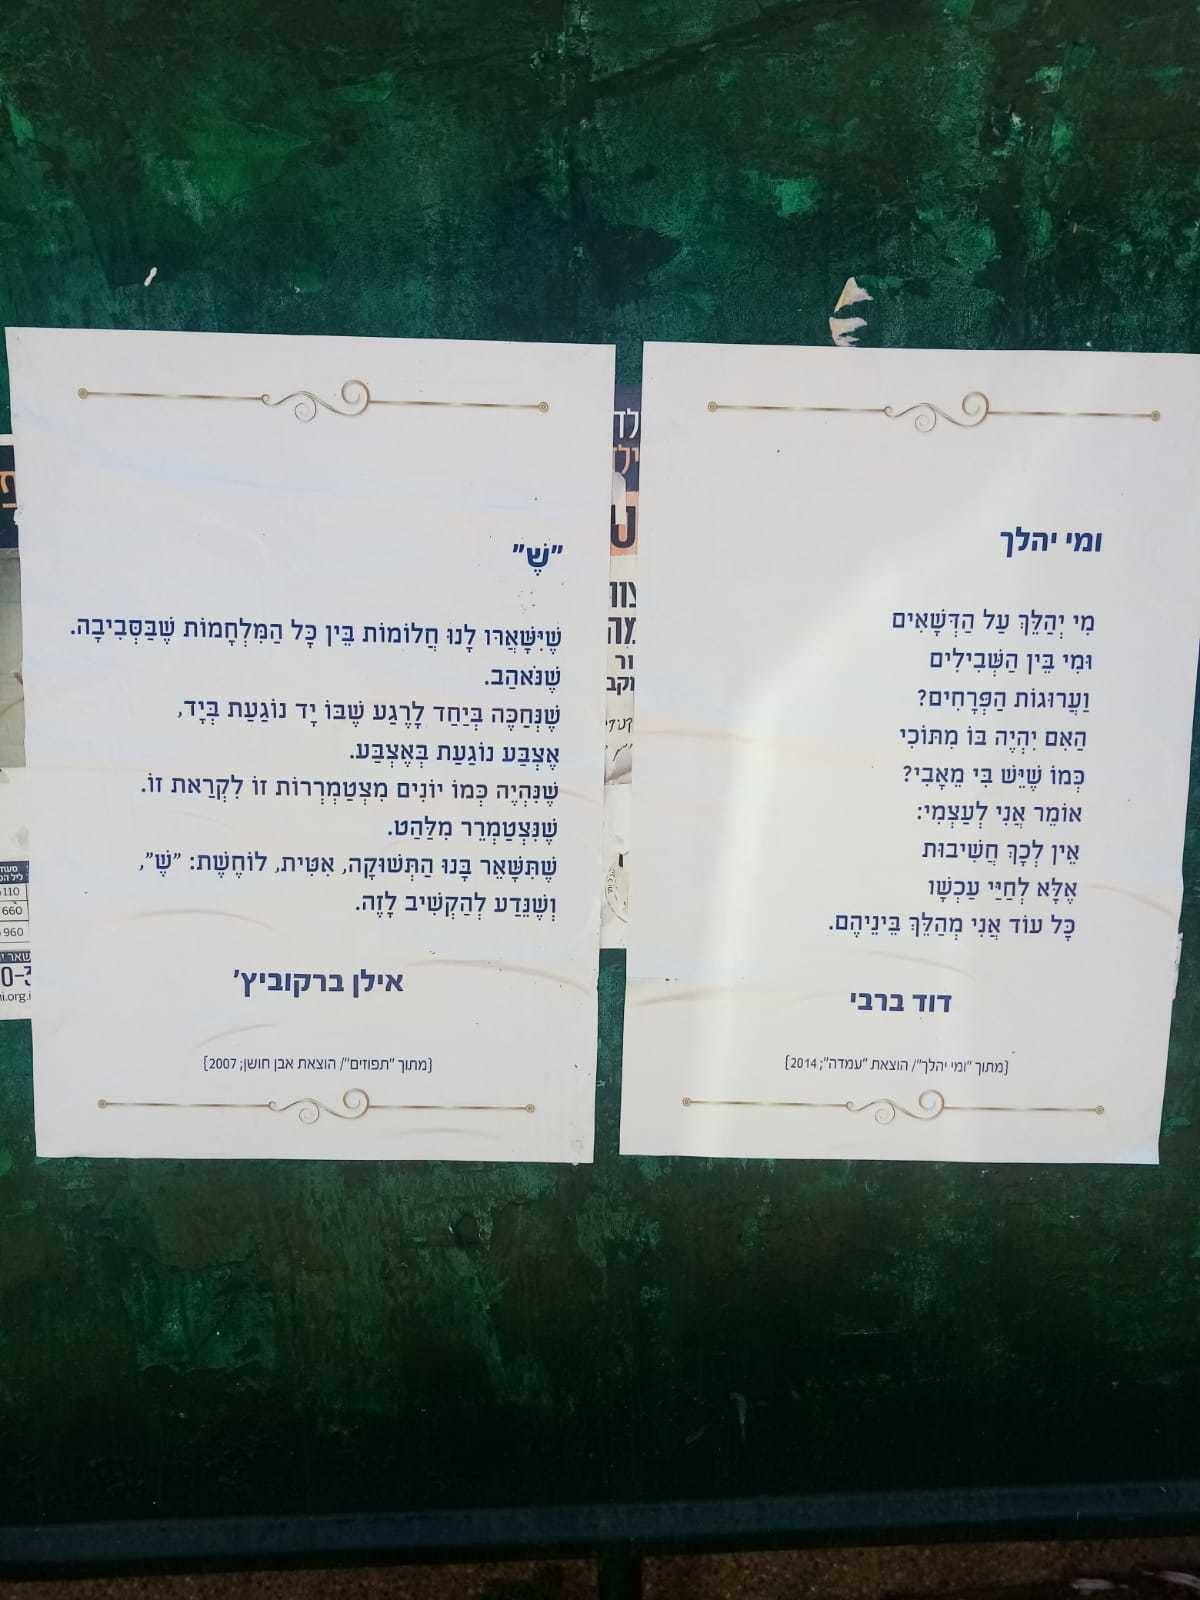 ומי יהלך
מִי יְהַלֵּךְ עַל הַדְּשָׁאִים
וּמִי בֵּין הַשְּׁבִילִים
וַעֲרוּגוֹת הַפְּרָחִים?
הַאִם יִהְיֶה בּוֹ מִתּוֹכִי
כְּמוֹ שֶׁיֵּשׁ בִּי מֵאָבִי?
אוֹמֵר אֲנִי לְעַצְמִי:
אֵין לְכָךְ חֲשִׁיבוּת
אֶלָּא לְחַיַּי עַכְשָׁו
כָּל עוֹד אֲנִי מְהַלֵּךְ בֵּינֵיהֶם.
דוד ברבי
(מתוך "ומי יהלך"/ הוצאת "עמדה"; 2014)
"שֶׁ"
שֶׁיִּשָּׁאֲרוּ לָנוּ חֲלוֹמוֹת בֵּין כָּל הַמִּלְחָמוֹת שֶׁבַּסְּבִיבָה.
שֶׁנֹּאהַב.
שֶׁנְּחַכֶּה בְּיַחַד לָרֶגַע שֶׁבּוֹ יָד נוֹגַעַת בְּיָד,
אֶצְבַּע נוֹגַעַת בְּאֶצְבַּע.
שֶׁנִּהְיֶה כְּמוֹ יוֹנִים מִצְטַמְרְרוֹת זוֹ לִקְרַאת זוֹ.
שֶׁנִּצְטַמְרֵר מִלַּהַט.
שֶׁתִּשָּׁאֵר בָּנוּ הַתְּשׁוּקָה, אִטִּית, לוֹחֶשֶׁת: "שֶׁ",
וְשֶׁנֵּדַע לְהַקְשִׁיב לָזֶה.
אילן ברקוביץ'
(מתוך "תפוזים"/ הוצאת אבן חושן; 2007)
110
660
960